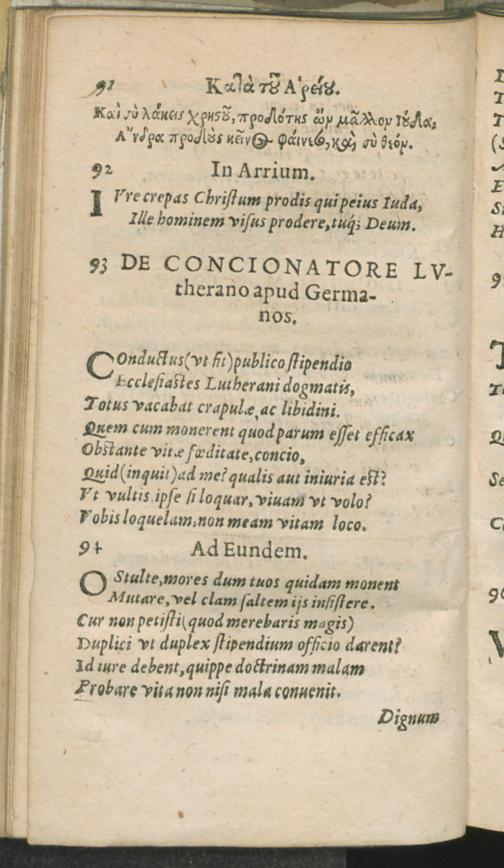 91 Κατὰ τοῦ Ἀρείου.
Καὶ σὺ λάκεις χριςοῦ, προδότης ὢν μᾶλλον Ἰούδα,
Ἄνδρα προδοὺς κεῖνος φαίνεθ, καὶ σὺ θεόν.
92 In Arrium.
IVre crepas Chriſtum prodis qui peius Iuda,
Ille hominem viſus prodere, tuq; Deum.
93 DE CONCIONATORE LV-
therano apud Germa-
nos.
COnductus (vt fit) publico ſtipendio
Eccleſiaſtes Lutherani dogmatis,
Totus vacabat crapulæ, ac libidini.
Quem cum monerent quod parum eſſet efficax
Obſtante vitæ fœditate, concio,
Quid (inquit) ad me? qualis aut iniuria eſt?
Vt vultis ipſe ſi loquar, viuam vt volo?
Vobis loquelam, non meam vitam loco.
94 Ad Eundem.
O Stulte, mores dum tuos quidam monent
Mutare, vel clam ſaltem ijs inſiſtere.
Cur non petiſti (quod merebaris magis)
Duplici vt duplex ſtipendium officio darent?
Id iure debent, quippe doctrinam malam
Probare vita non niſi mala conuenit.
Dignum